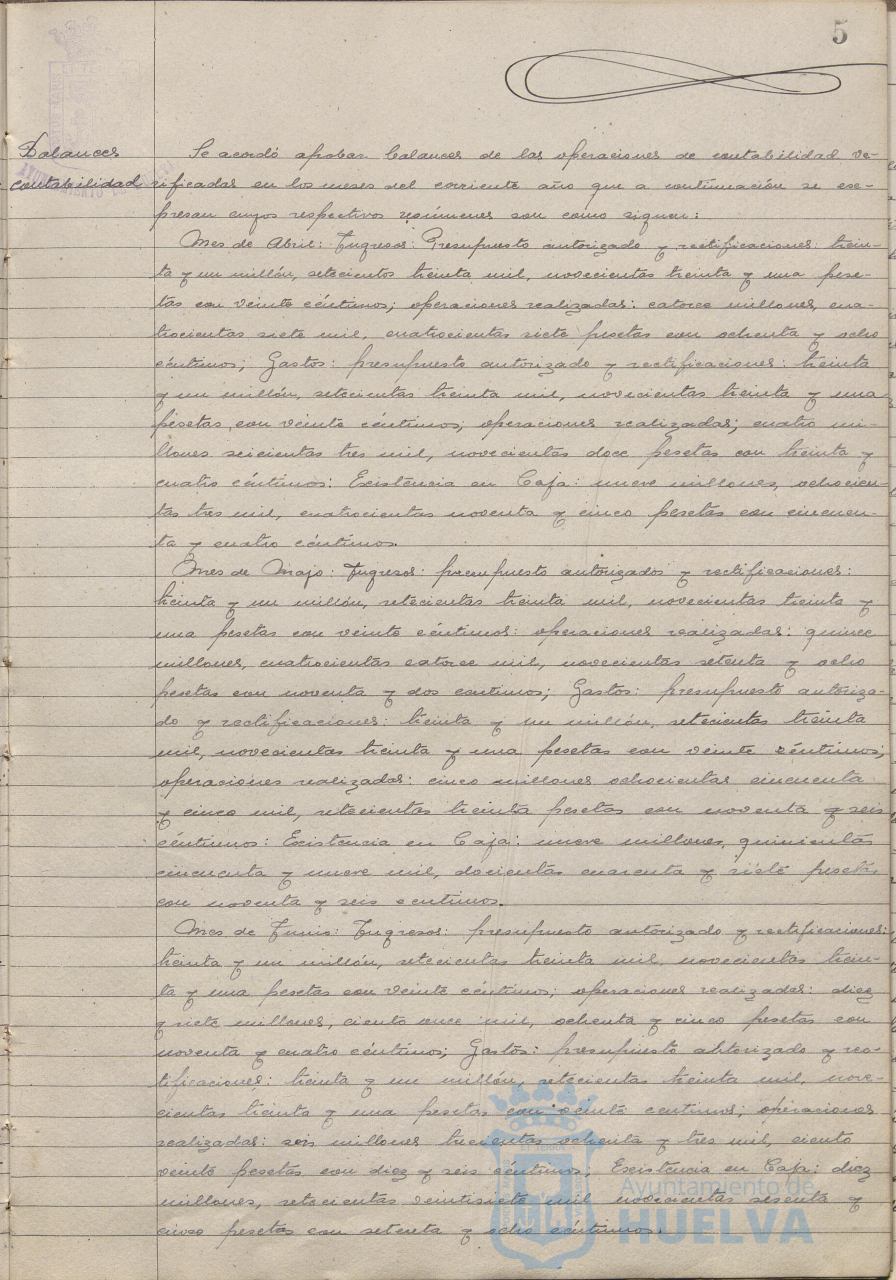 5
Balances
contabilidad
Se acordó aprobar balances de las operaciones de contabilidad ve-
rificadas en los meses del corriente año que a continuación se esc-
presan cuyos respectivos resúmenes son como siguen:
Mes de Abril: Ingresos: Presupuesto autorizado y rectificaciones: trein-
ta y un millón, setecientos treinta mil, novecientas treinta y una pese-
tas con veinte céntimos; operaciones realizadas: catorce millones, cua-
trocientas siete mil, cuatrocientas siete pesetas con ochenta y ocho
céntimos; Gastos: presupuesto autorizado y rectificaciones: treinta
y un millón, setecientas treinta mil, novecientas treinta y una
pesetas con veinte céntimos; operaciones realizadas; cuatro mi-
llones seiscientas tres mil, novecientas doce pesetas con treinta y
cuatro céntimos: Existencia en Caja: nueve millones, ochocien-
tas tres mil, cuatrocientas noventa y cinco pesetas con cincuen-
ta y cuatro céntimos.
Mes de Mayo: Ingresos: presupuesto autorizados y rectificaciones:
treinta y un millón, setecientas treinta mil, novecientas treinta y
una pesetas con veinte céntimos: operaciones realizadas: quince
millones, cuatrocientas catorce mil, novecientas setenta y ocho
pesetas con noventa y dos centimos; Gastos: presupuesto autoriza-
do y rectificaciones: treinta y un millón, setecientas treinta
mil, novecientas treinta y una pesetas con veinte céntimos;
operaciones realizadas: cinco millones ochocientas cincuenta
y cinco mil, setecientas treinta pesetas con noventa y seis
céntimos: Existencia en Caja: nueve millones, quinientas
cincuenta y nueve mil, docientas cuarenta y siete pesetas
con noventa y seis centimos.
Mes de Junio: Ingresos: presupuesto autorizado y rectificaciones:
treinta y un millón, setecientas treinta mil, novecientas trein-
ta y una pesetas con veinte céntimos; operaciones realizadas: diez
y siete millones, ciento once mil, ochenta y cinco pesetas con
noventa y cuatro céntimos; Gastos: presupuesto ahtorizado y rec-
tificaciones: treinta y un millón, setecientas treinta mil, nove-
cientas treinta y una pesetas con veinte centimos; operaciones
realizadas: seis millones trecientas ochenta y tres mil, ciento
veinte pesetas con diez y seis céntimos; Existencia en Caja: diez
millones, setecientas veintisiete mil novecientas sesenta y
cinco pesetas con setenta y ocho céntimos.
Ayuntamiento de
HUELVA